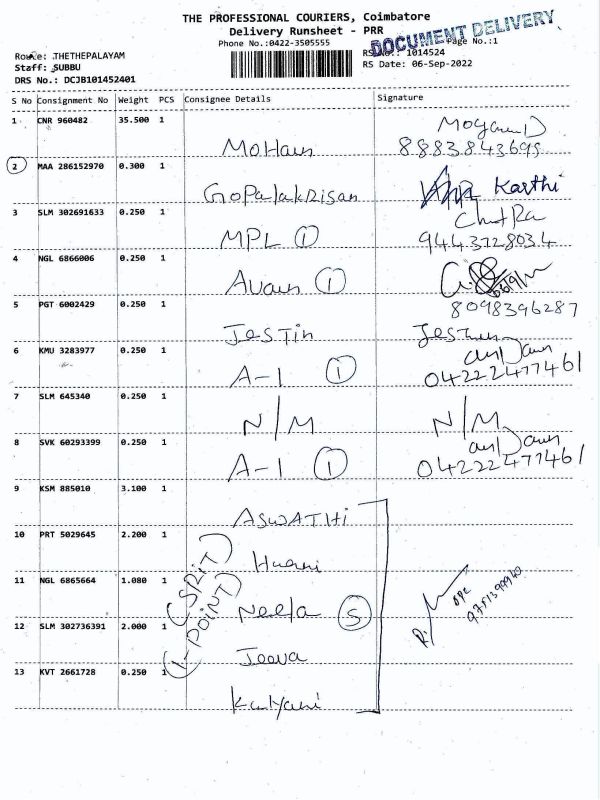 THE PROFESSIONAL COURIERS, Coimbatore
Delivery Runsheet - PRR
Phone No.:0422-3505555
Page No.:1
DOCUMENT DELIVERY
Route: THETHEPALAYAM
RS No.: 1014524
Staff: SUBBU
RS Date: 06-Sep-2022
DRS No.: DCJB101452401
S No Consignment No Weight PCS Consignee Details Signature
1 CNR 960482 35.500 1
Mohan 8883843699
2 MAA 286152970 0.300 1
Gopalakrisan Karthi
3 SLM 302691633 0.250 1 ChitRa
MPL 1 9443728034
4 NGL 6866006 0.250 1
Avain 1
5 PGT 6002429 0.250 1 8098396287
Jestin Jestin
6 KMU 3283977 0.250 1
A-1 1 04222477461
7 SLM 645340 0.250 1
N/M N/M
8 SVK 60293399 0.250 1
A-1 1 04222477461
9 KSM 885010 3.100 1
ASWATHi
10 PRT 5029645 2.200 1
11 NGL 6865664 1.080 1
(SRIT)
(1-POINT)
Neela 5
12 SLM 302736391 2.000 1
Jeeva
13 KVT 2661728 0.250 1
Kalyani